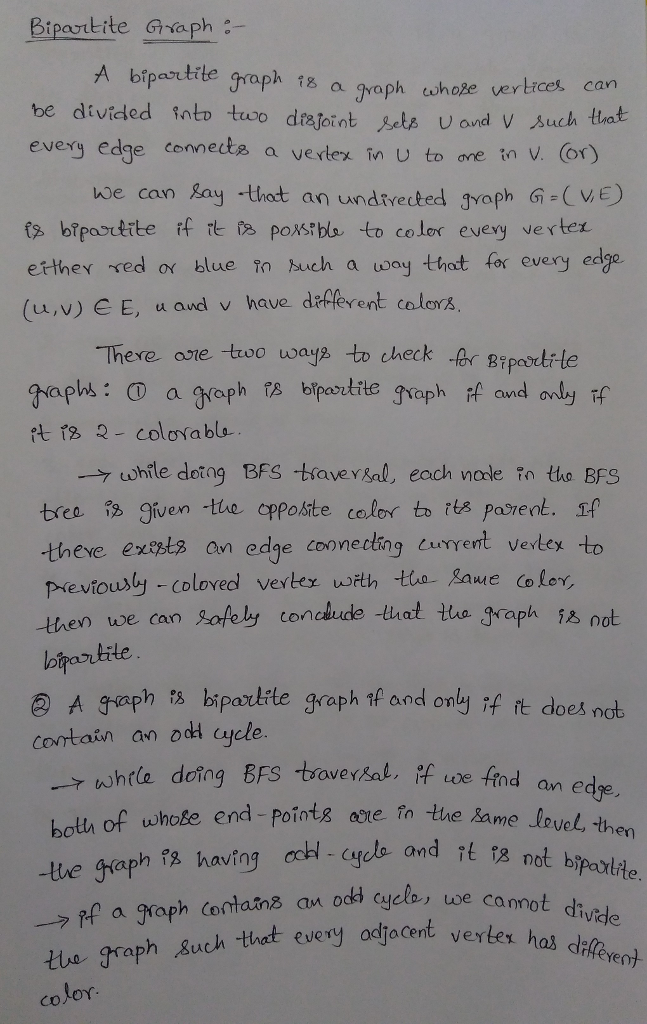 Bipartite Graph :-
A bipartite graph is a graph whose vertices can
be divided into two disjoint sets U and V such that
every edge connects a vertex in U to one in V. (or)
We can say that an undirected graph G=(V,E)
is bipartite if it is possible to color every vertex
either red or blue in such a way that for every edge
(u,v) ∈ E, u and v have different colors.
There are two ways to check for Bipartite
graphs: ① a graph is bipartite graph if and only if
it is 2-colorable.
→ while doing BFS traversal, each node in the BFS
tree is given the opposite color to its parent. If
there exists an edge connecting current vertex to
previously-colored vertex with the same color,
then we can safely conclude that the graph is not
bipartite.
② A graph is bipartite graph if and only if it does not
contain an odd cycle.
→ while doing BFS traversal, if we find an edge,
both of whose end-points are in the same level, then
the graph is having odd-cycle and it is not bipartite.
→ if a graph contains an odd cycle, we cannot divide
the graph such that every adjacent vertex has different
color.